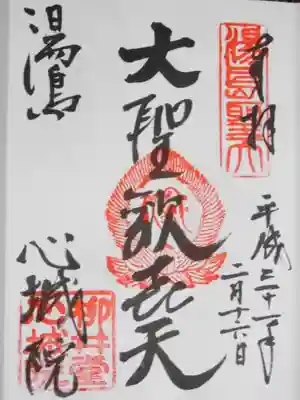 奉拝
湯島聖天
平成三十一年
二月十六日
大聖歓喜天
湯島
心城院
柳井堂